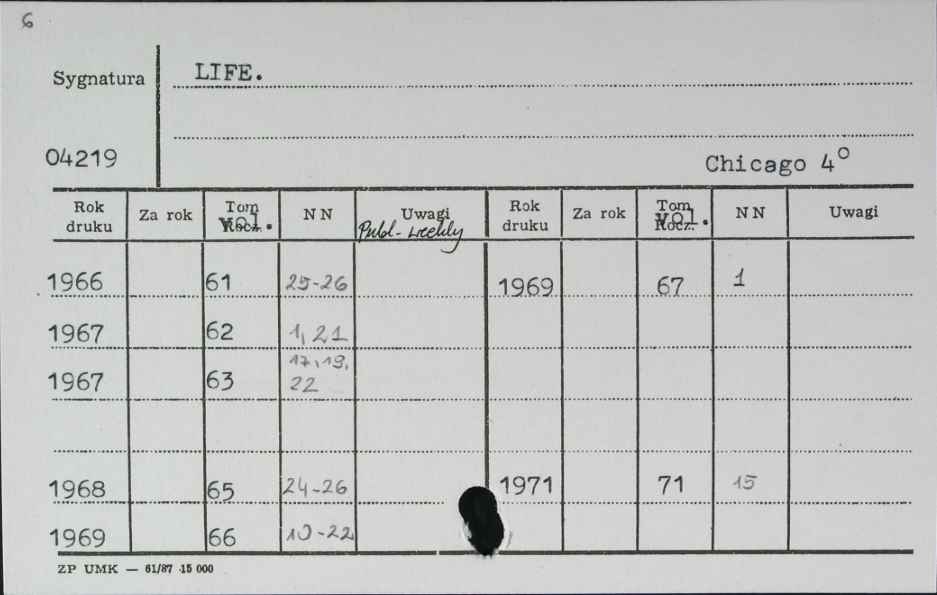 6
Sygnatura LIFE.
04219 Chicago 4°
Rok druku Za rok Tom Vol. Rocz. NN Uwagi Rok druku Za rok Tom Vol. Rocz. NN Uwagi
Publ. weekly
1966 61 25-26 1969 67 1
1967 62 1, 21
17, 19,
1967 63 22
1968 65 24-26 1971 71 15
1969 66 10-22
ZP UMK — 61/87 15 000